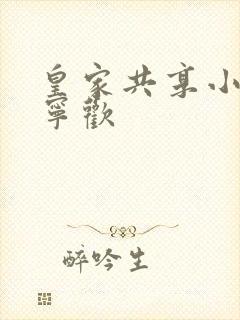 皇家共享小
寧歡
醉吟生